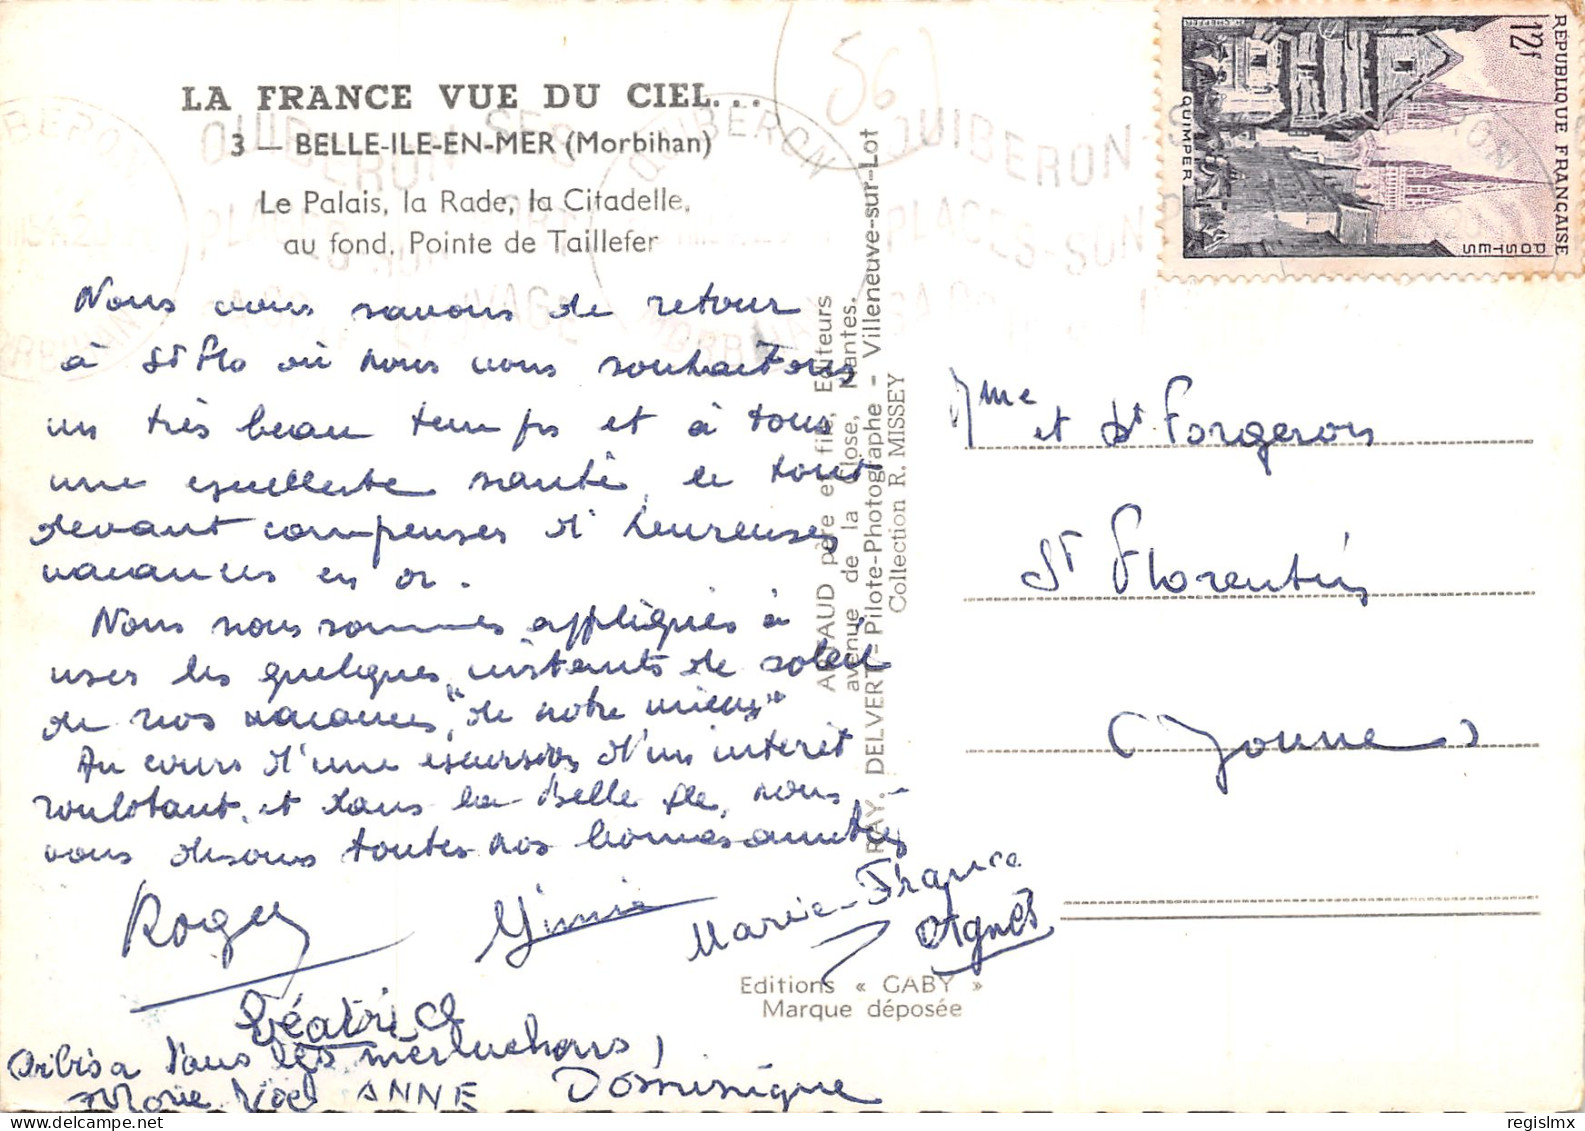 LA FRANCE VUE DU CIEL...
3 — BELLE-ILE-EN-MER (Morbihan)
Le Palais, la Rade, la Citadelle,
au fond, Pointe de Taillefer
Nous vous savons de retour
à St Flo où nous vous souhaitons
un très beau temps et à tous
une excellente santé, le tout
devant compenser d'heureuses
vacances en or.
Nous nous sommes appliqués à
user les quelques instants de soleil
de nos vacances, "de notre mieux"
Au cours d'une excursion d'un intérêt
et dans la Belle Ile, nous
vous disons toutes nos bonnes amitiés
Roger
Marie-France
Agnès
Béatrice
à tous les
Marie Noel ANNE Dominique
ARTAUD père et fils, Editeurs
avenue de la Close, Nantes.
RAY. DELVERT - Pilote-Photographe - Villeneuve-sur-Lot
Collection R. MISSEY
Editions « GABY »
Marque déposée
56
QUIBERON
MORBIHAN
QUIBERON - SES
PLAGES - SON PORT
REPUBLIQUE FRANÇAISE
12f
POSTES
QUIMPER
Mme et Forgeron
St Florentin
(Yonne)
regislmx